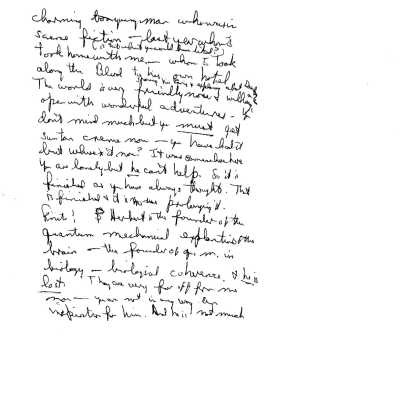 charming young man who was in
science fiction — last year who I
took home with me — whom I took
along the Blvd to his own hotel
The world is very friendly now & willing &
open with wonderful adventures.
don't mind much but you must get
suntan creme now — you have lost it
but where is it now? It was somewhere here
you are lonely but he can't help. So it's
finished as you have always thought. That
is finished & it's no use prolonging it.
Finis! Herbert is the founder of the
quantum mechanical explanation of the
brain — the founder of q. m. in
biology — biological coherence. & he is
lost. They are very far off from me
now — you are not in any way an
inspiration for him. And he is not much